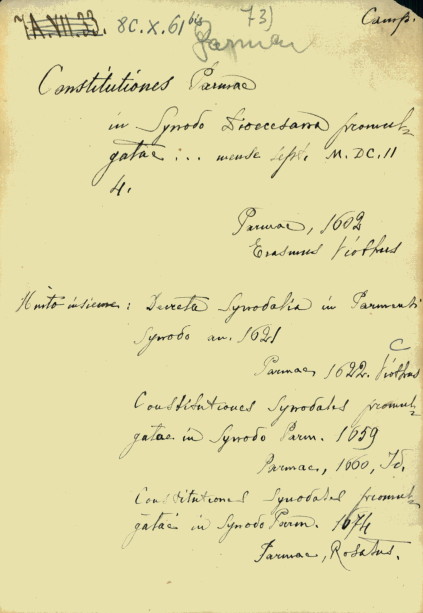 7A.VII.33. 8C.X.61 bis 73) Camp.
Parmen
Constitutiones Parmae
in Synodo Dioecesana promul-
gatae : .. mense sept. M.DC.II
4.
Parmae, 1602
Erasmus Viothus
Unito insieme: Decreta Synodalia in Parmensi
Synodo an. 1621
Parmae, 1622. Viothus
Constitutiones Synodales promul-
gatae in Synodo Parm. 1659
Parmae, 1660, Id.
Constitutiones Synodales promul-
gatae in Synodo Parm. 1674
Parmae, Rosatus.